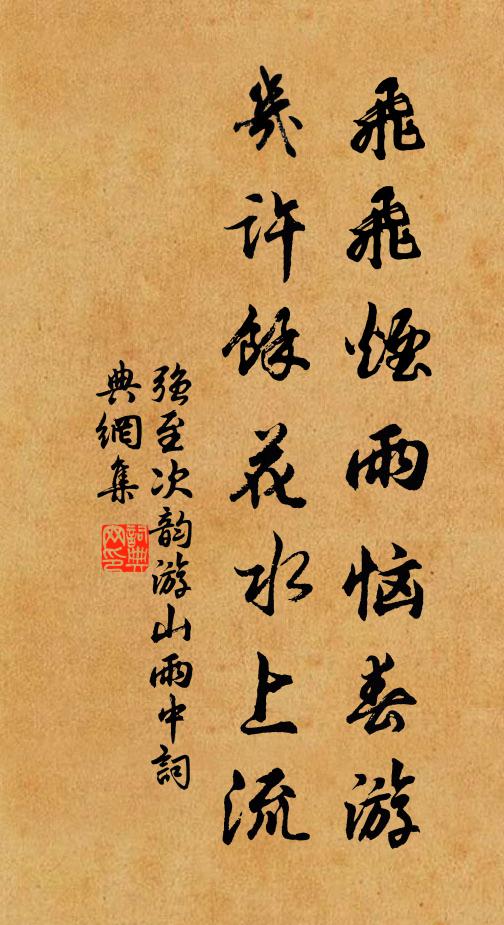 飛飛煙雨惱春游
幾許餘花水上流
強至次韵游山雨中詞
典網集
詞典
网印